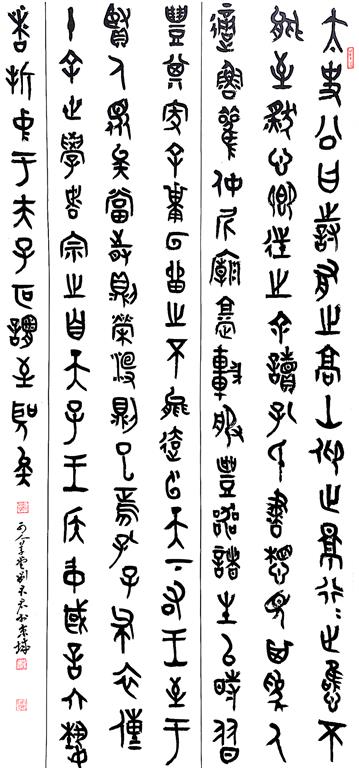 太史公曰詩有之高山仰止景行行止雖不
能至然心鄉往之余讀孔氏書想見其為人
適魯觀仲尼廟堂車服禮器諸生以時習
禮其家余回留之不能去云天下君王至于
賢人眾矣當時則榮沒則已焉孔子布衣傳
十余世學者宗之自天子王侯中國言六藝
者折中于夫子可謂至聖矣